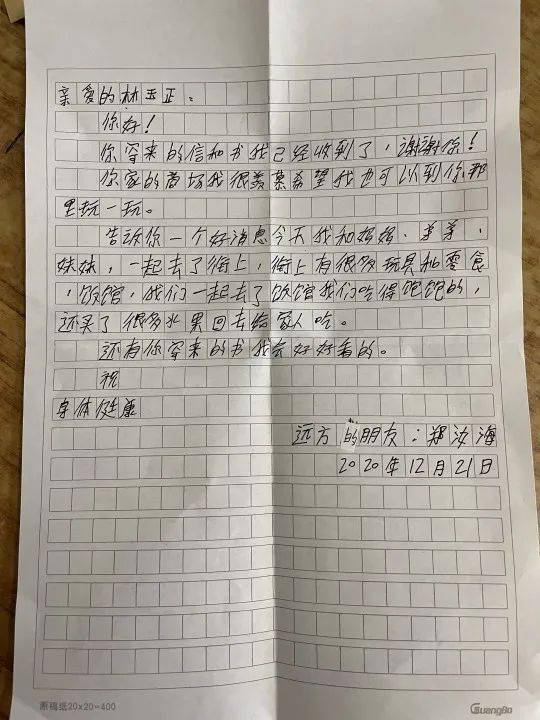 亲爱的林玉正：
你好！
你寄来的信和书我已经收到了，谢谢你！
你家的商场我很羡慕希望我也可以到你那
里玩一玩。
告诉你一个好消息今天我和妈妈、弟弟、
妹妹，一起去了街上，街上有很多玩具和零食
，饭馆，我们一起去了饭馆我们吃得饱饱的，
还买了很多水果回去给家人吃。
还有你寄来的书我会好好看的。
祝
身体健康
远方的朋友：郑汝海
2020年12月21日
原稿纸20×20=400
GuangBo